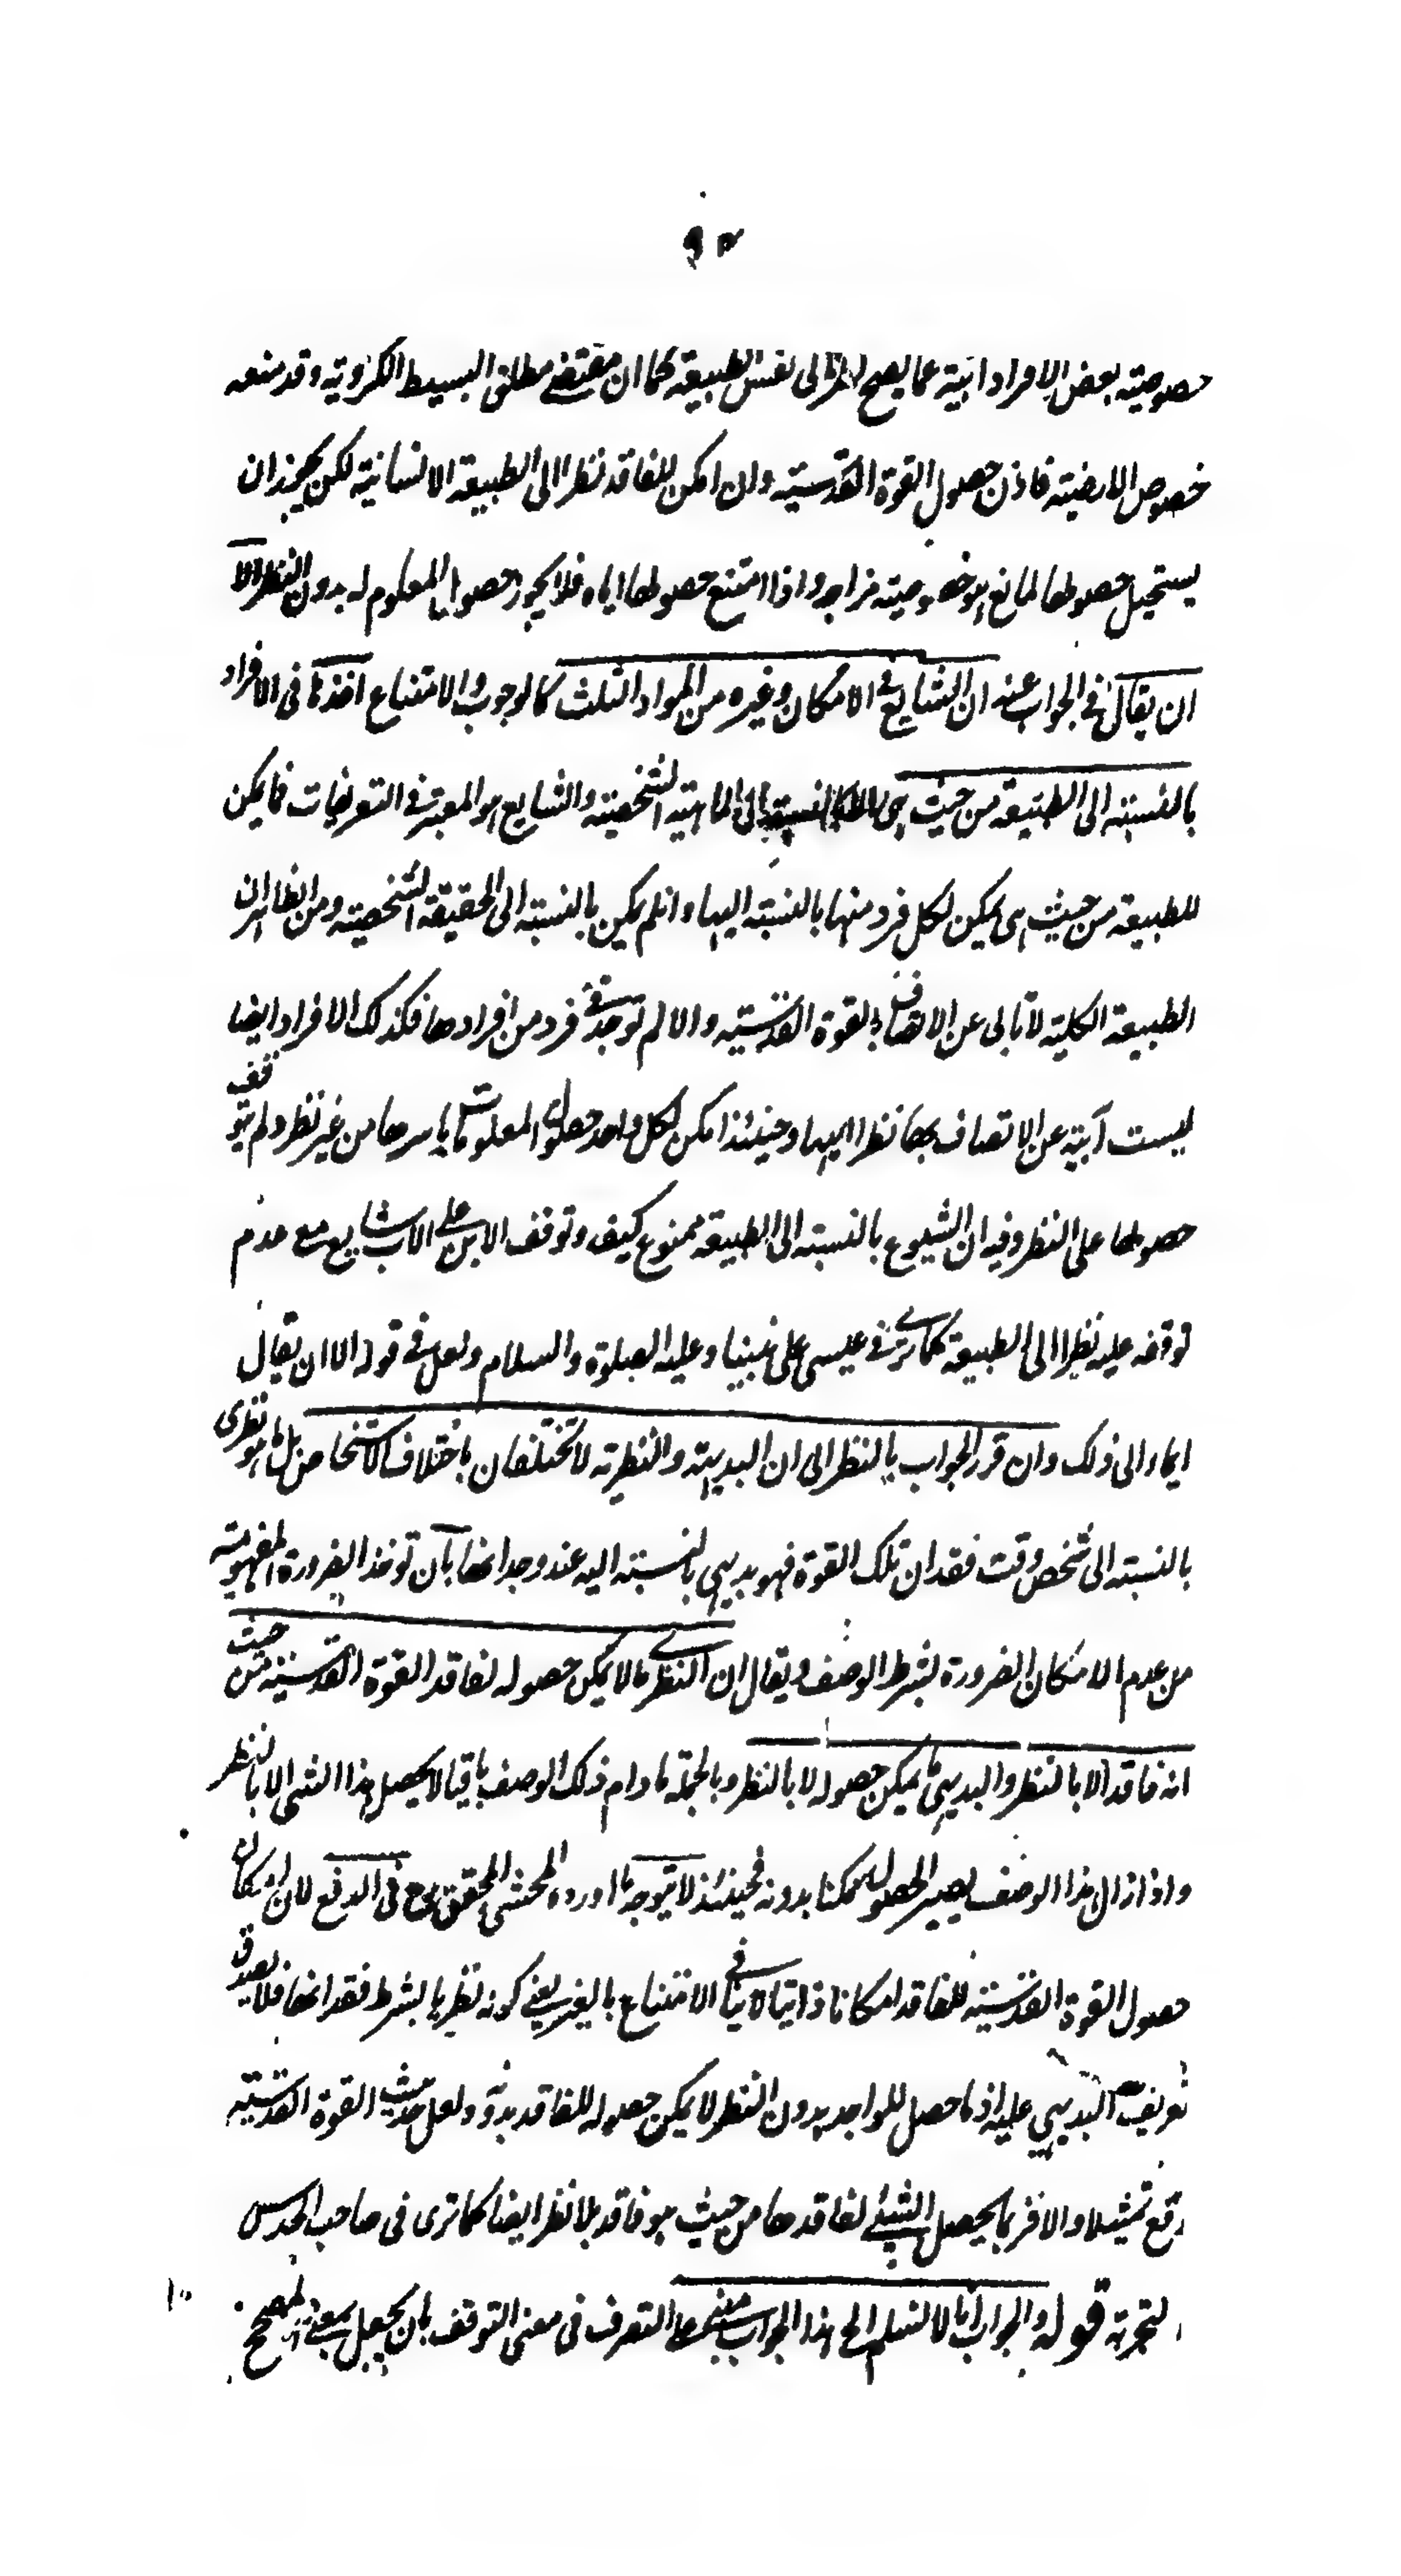 ٩٣
خصوصيته بعض الافراد ابية عما يصح بالنظر الى نفس الطبيعة كما ان مقتضى مطلق البسيط الكروية وقد منعه
خصوص الارضية فاذن حصول القوة القدسية وان امكن للفاقد نظرا الى الطبيعة الانسانية لكن يجوز ان
يستحيل حصولها لمانع هو خصوصيته مزاجه واذا امتنع حصولها اياه فلا يجوز حصول المعلوم له بدون النظر الا
ان يقال في الجواب عنه ان الشايع في الامكان وغيره من المواد الثلث كالوجوب والامتناع اخذها فى الافراد
بالنسبته الى الطبيعة من حيث هى بالنسبة الى الماهية الشخصية والشايع هو المعتبر فى التعريفات فما يمكن
للطبيعة من حيث هى يمكن لكل فرد منها بالنسبته اليها وانلم يكن بالنسبته الى الحقيقة الشخصية ومن الظاهر ان
الطبيعة الكلية لا تابى عن الاتصاف بالقوة القدسية والا لم توجد فى فرد من افرادها فكذلك الافراد ايضا
ليست آبية عن الاتصاف بها نظرا اليها وحينئذ امكن لكل واحد حصول المعلومات باسرها من غير نظر ولم يتوقف
حصولها على النظر وفيه ان الشيوع بالنسبته الى الطبيعة ممنوع كيف وتوقف الابن على الاب شايع مع عدم
توقفه عليه نظرا الى الطبيعة كما ترى فى عيسى على نبينا وعليه الصلوة والسلام ولعل فى قوله الا ان يقال
ايماء الى ذلك وان قرر الجواب بالنظر الى ان البديهية والنظرية لا تختلفان باختلاف الاشخاص بل ما هو نظرى
بالنسبته الى شخص وقت فقدان تلك القوة فهو بديهى بالنسبته اليه عند وجدانها بان توخذ الضرورة المفهومة
من عدم الامكان الضرورة بشرط الوصف ويقال ان النظرى ما لا يمكن حصوله لفاقد القوة القدسية من حيث
انه فاقد الا بالنظر والبديهى ما يمكن حصوله لا بالنظر وبالجملة ما دام ذلك الوصف باقيا لا يحصل هذا الشى الا بالنظر
واذا زال هذا الوصف يصير الحصول ممكنا بدونه فحينئذ لا يتوجه ما اورده المحشى المحقق رح فى الدفع لان امكان
حصول القوة القدسية للفاقد امكانا ذاتيا لا ينافى الامتناع بالغير يعنى كونه نظريا بشرط فقدانها فلا يصدق
تعريف البديهى عليه اذ ما حصل للواجد بدون النظر لا يمكن حصوله للفاقد بدونه ولعل حديث القوة القدسية
وقع تمثيلا والا فربما يحصل الشئ لفاقدها من حيث هو فاقد بلا نظر ايضا كما ترى فى صاحب الحدس
والتجربة قوله والجواب انا لا نسلم الخ هذا الجواب التصرف فى معنى التوقف بان يجعل بمعنى المصحح